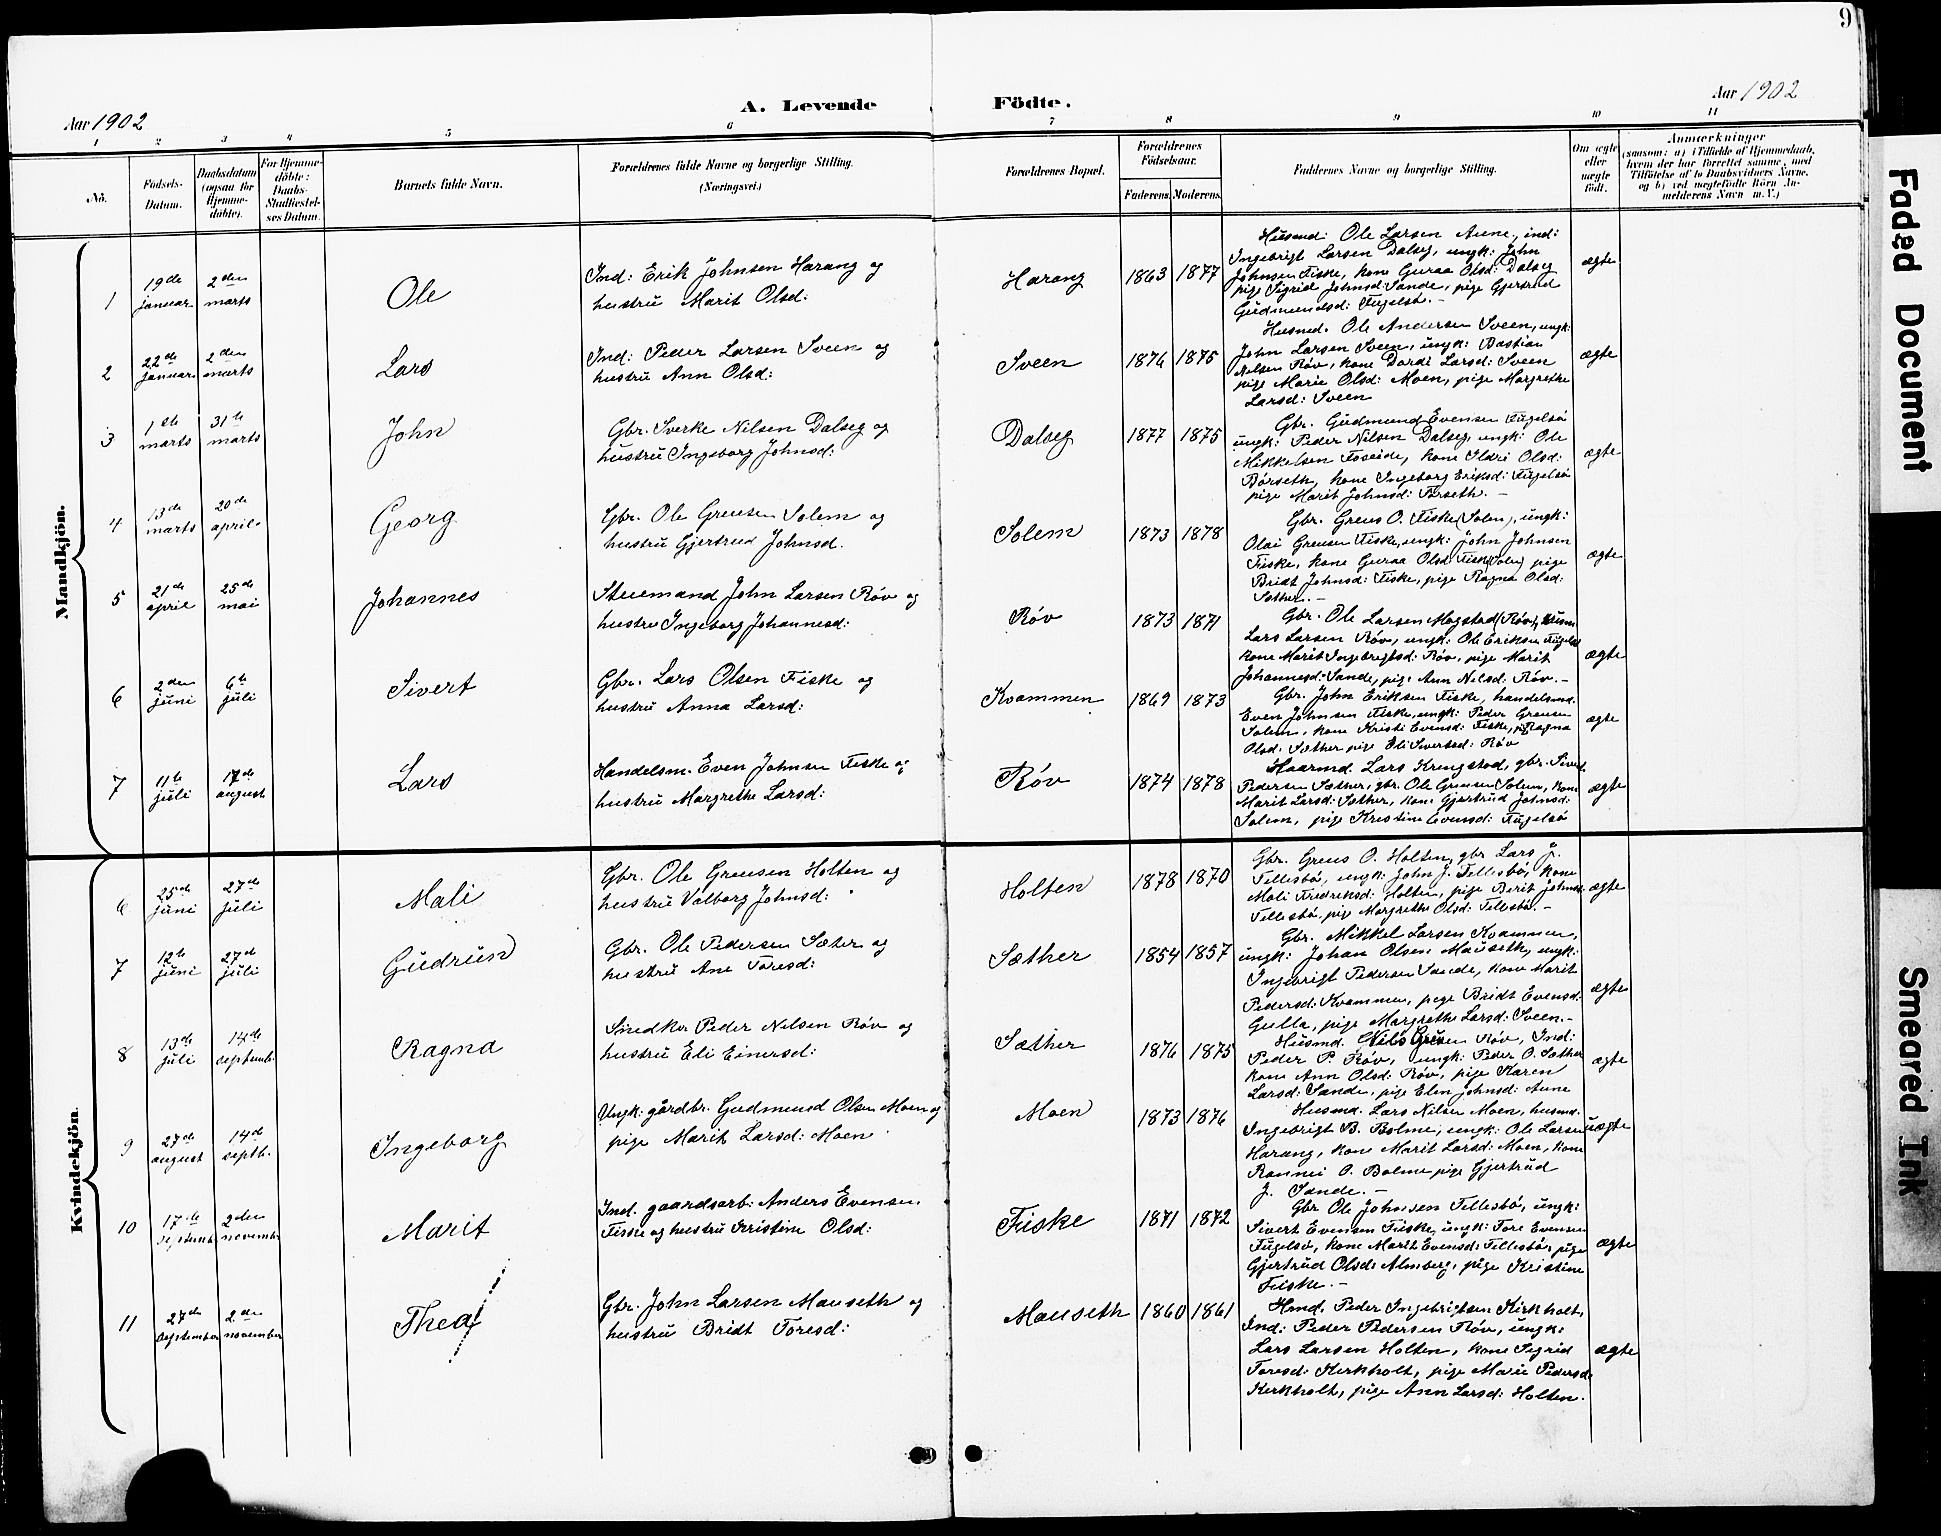 9
Aar 1902
A. Levende Födte.
Aar 1902
1 2 3 4 5 6 7 8 9 10 11
No.
Födsels-
Datum.
Daabsdatum
(ogsaa for
Hjemme-
döbte).
For Hjemme-
döbte:
Daabs-
Stadfæstel-
ses Datum.
Barnets fulde Navn.
Forældrenes fulde Navne og borgerlige Stilling.
(Næringsvei.)
Forældrenes Bopæl.
Forældrenes
Födselsaar.
Faderens. Moderens.
Faddernes Navne og borgerlige Stilling.
Om ægte
eller
uægte
födt.
Anmærkninger
(saasom: a) i Tilfælde af Hjemmedaab,
hvem der har forrettet samme, med
Tilföielse af to Daabsvidners Navne,
og b) ved uægtefödte Börn An-
melderens Navn m. V.)
Mandkjön.
1
19de
januar
2den
marts
Ole
Ind: Erik Johnsen Harang og
hustru Marit Olsd:
Harang
1863 1877
Husmd: Ole Larsen Aune, ind:
Ingebrigt Larsen Dalseg, ungk: John
Johnsen Fiske, kone Guraa Olsd: Dalseg
pige Sigrid Johnsd: Sande, pige Gjertrud
Gudmundsd: Fugelsö. -
ægte
2
22de
januar
2den
marts
Lars
Ind: Peder Larsen Sveen og
hustru Ann Olsd:
Sveen
1876 1875
Husmd. Ole Andersen Sveen, ungk:
John Larsen Sveen, ungk: Bastian
Nilsen Röv, kone Dordi Larsd: Sveen
pige Marie Olsd: Moen, pige Margrethe
Larsd: Sveen
ægte
3
1ste
marts
31te
marts
John
Gbr. Sverke Nilsen Dalseg og
hustru Ingeborg Johnsd:
Dalseg
1877 1875
Gbr. Gudmund Evensen Fugelsö
ungk: Peder Nilsen Dalseg, ungk: Ole
Mikkelsen Foseide, kone Ildri Olsd:
Börseth, kone Ingeborg Eriksd: Fugelsö
pige Marit Johnsd: Börseth. -
ægte
4
13de
marts
20de
april
Georg
Gbr. Ole Greusen Solem og
hustru Gjertrud Johnsd.
Solem
1873 1878
Gbr. Greus O. Fiske (Solem), ungk:
Olai Greusen Fiske, ungk: John Johnsen
Fiske, kone Guraa Olsd: Fiske (Solem) pige
Bridt Johnsd: Fiske, pige Ragna Olsd:
Sæther. -
ægte
5
21de
april
25de
mai
Johannes
Stuemand John Larsen Röv og
hustru Ingeborg Johannesd:
Röv
1873 1871
Gbr. Ole Larsen Mogstad (Röv), Husm.
Lars Larsen Röv, ungk: Ole Eriksen Fugelsö
kone Marit Ingebrigtsd: Röv, pige Marit
Johannesd: Sande, pige Ann Nilsd: Röv. -
ægte
6
2den
juni
6te
juli
Sivert
Gbr. Lars Olsen Fiske og
hustru Anna Larsd:
Kvammen
1869 1873
Gbr. John Eriksen Fiske, handelsmd.
Even Johnsen Fiske, ungk: Peder Greusen
Solem, kone Kristi Evensd: Fiske, pige Ragna
Olsd: Sæther pige Eli Sivertsd: Röv
ægte
7
11te
juli
17de
august
Lars
Handelsm. Even Johnsen Fiske og
hustru Margrethe Larsd:
Röv
1874 1878
Gaarmd. Lars Krengstad, gbr. Sivert
Pedersen Sæther, gbr. Ole Greusen Solem, kone
Marit Larsd: Sæther, kone Gjertrud Johnsd:
Solem, pige Kristine Evensd: Fugelsö
ægte
Kvindekjön.
6
25de
juni
27de
juli
Mali
Gbr. Ole Greusen Holten og
hustru Valborg Johnsd:
Holten
1878 1870
Gbr. Greus O. Holten, gbr Lars J.
Tellesbö, ungk: John J. Tellesbö, kone
Mali Fredriksd: Holten, pige Berit Johnsd.
Tellesbö, pige Margrethe Olsd: Tellesbö. -
ægte
7
12te
juni
27de
juli
Gudrun
Gbr. Ole Pedersen Sæter og
hustru Ane Toresd:
Sæther
1854 1857
Gbr. Mikkel Larsen Kvammen,
ungk: Johan Olsen Mauseth, ungk:
Ingebrigt Pedersen Sande, kone Marit
Pedersd: Kvammen, pige Bridt Evensd:
Gulla, pige Margrethe Larsd: Sveen. -
ægte
8
13de
juli
14de
septemb.
Ragna
Snedker Peder Nilsen Röv og
hustru Eli Einersd:
Sæther
1876 1875
Husmd. Nils Röv, Ind:
Peder P. Röv, ungk: Peder O. Sæther
kone Ann Olsd: Röv, pige Karen
Larsd: Sande, pige Elen Johnsd: Aune
ægte
9
27de
august
14de
septb.
Ingeborg
Ungk: gårdbr. Gudmund Olsen Moen og
pige Marit Larsd: Moen
Moen
1873 1876
Husmd. Lars Nilsen Moen, husmd.
Ingebrigt B. Bolme, ungk: Ole Larsen
Harang, kone Marit Larsd: Moen, kone
Rannei O. Bolme pige Gjertrud
J. Sande. -
uægte
10
17de
septemb
2den
novemb
Marit
Ind. gaardsarb: Anders Evensen
Fiske og hustru Kristine Olsd:
Fiske
1871 1872
Gbr Ole Johnsen Tellesbö, ungk:
Sivert Evensen Fiske, ungk: Tore Evensen
Fugelsö, kone Marit Evensd: Tellesbö, pige
Gjertrud Olsd: Almberg, pige Kristine
Fiske. -
ægte
11
27de
september
2den
november
Thea
Gbr. John Larsen Mauseth og
hustru Bridt Toresd:
Mauseth
1860 1861
Hmd. Peder Ingebrigtsen Kirkholt,
Ind: Peder Pedersen Röv, ungk:
Lars Larsen Holten, kone Sigrid
Toresd: Kirkholt, pige Marie Pedersd:
Kirkholt, pige Ann Larsd: Holten.
ægte
Faded Document
Smeared Ink